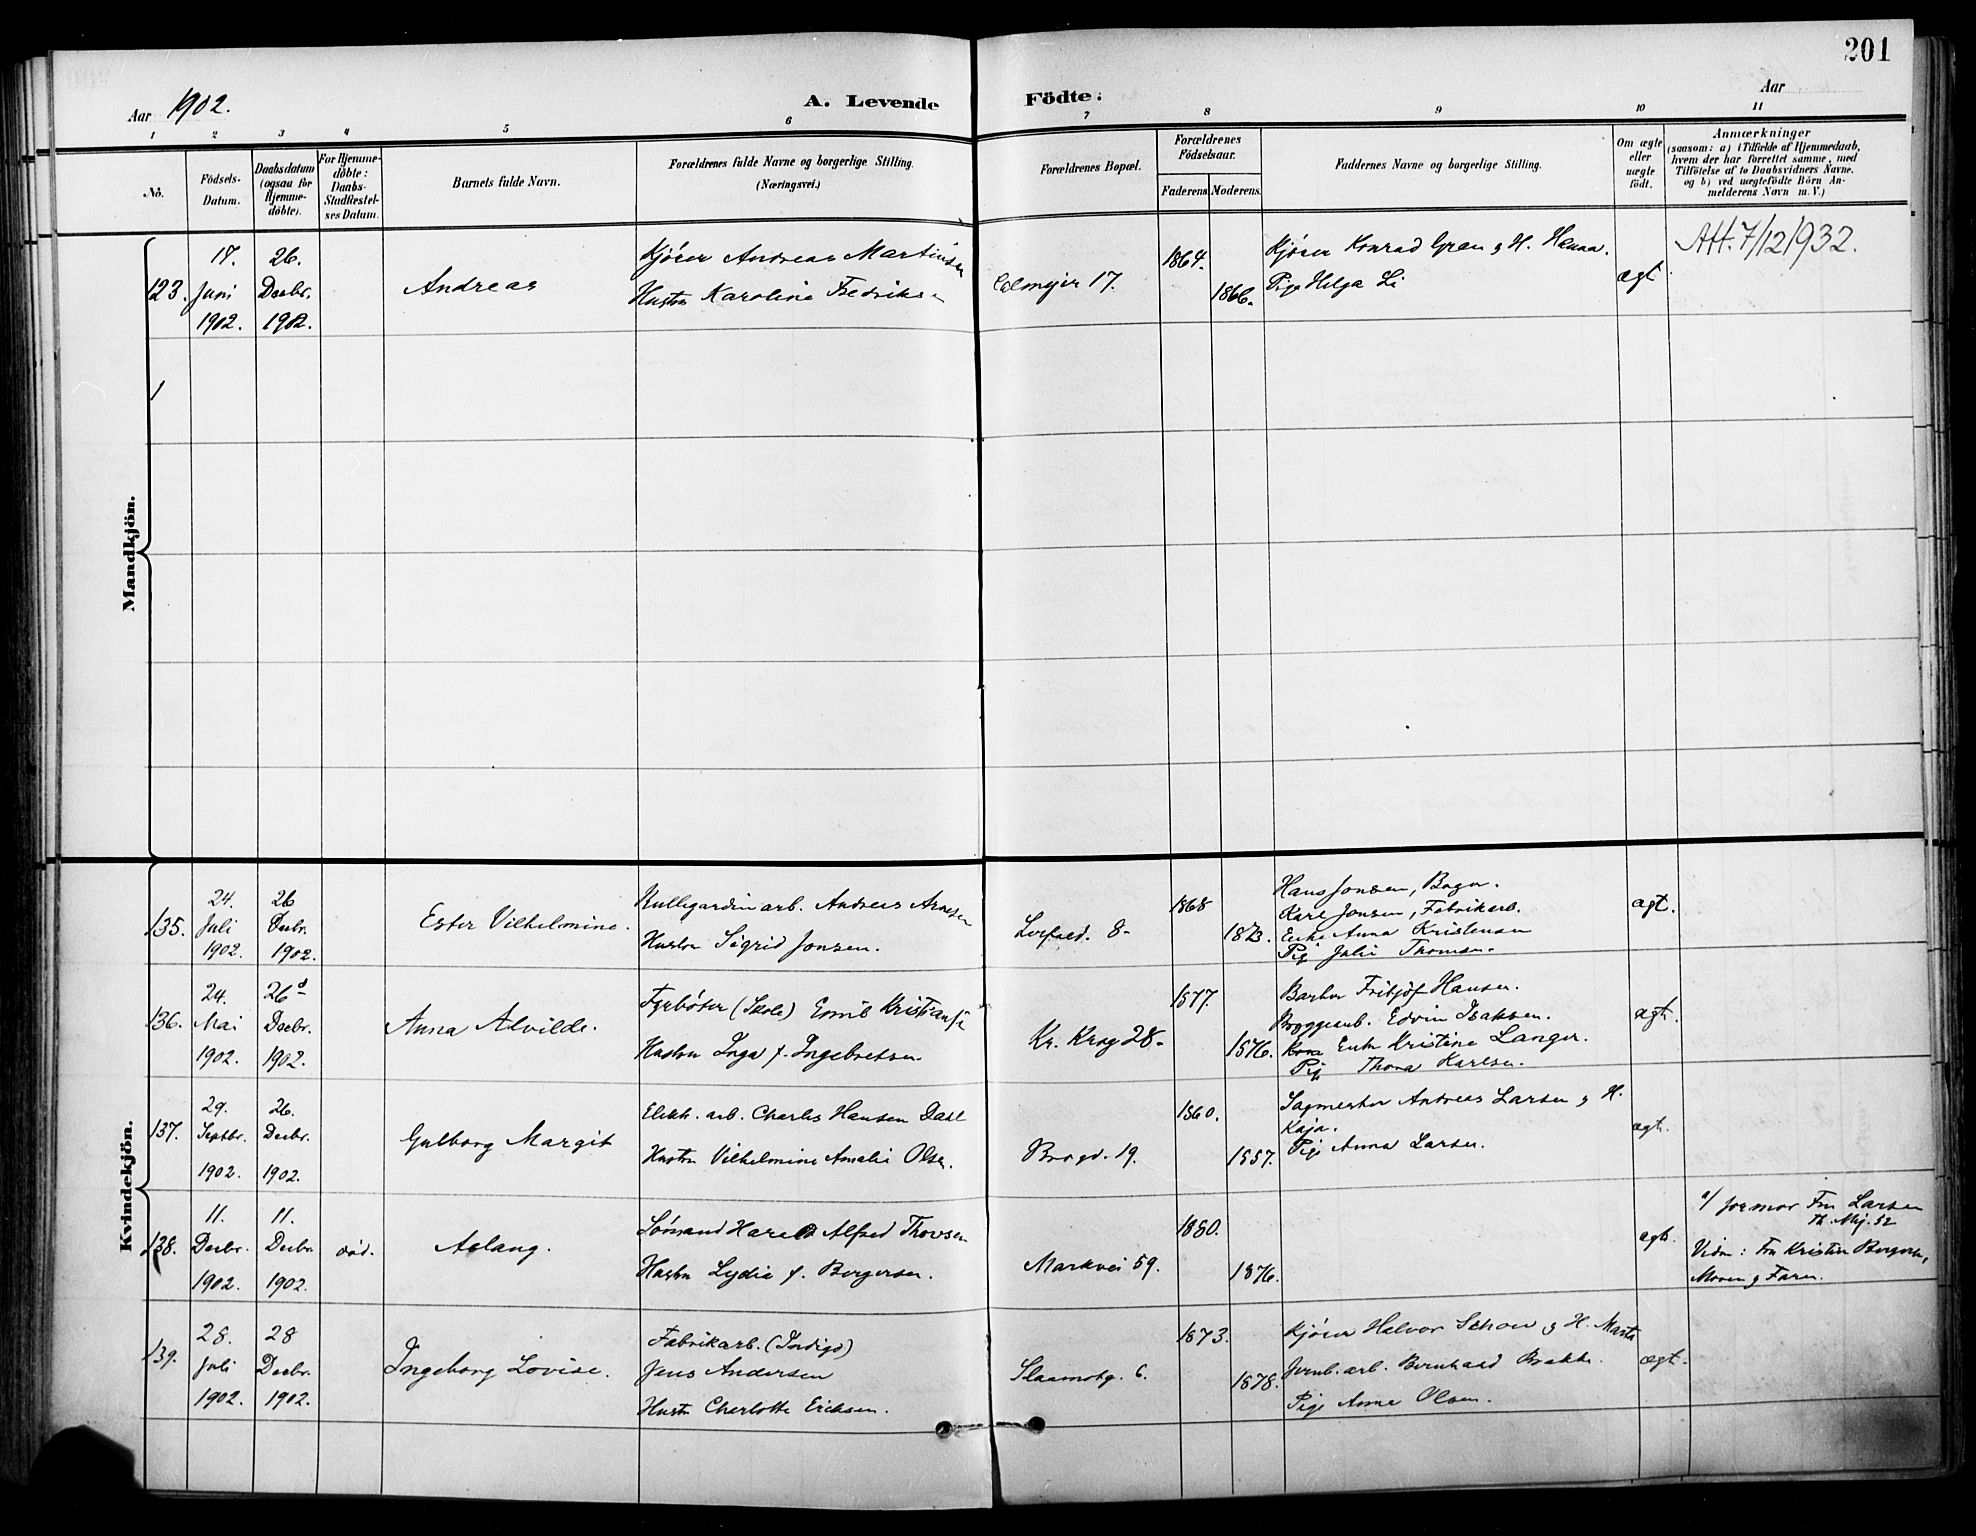 201
Aar 1902.
A. Levende Födte.
Aar
1 2 3 4 5 6 7 8 9 10 11
No.
Födsels-Datum.
Daabsdatum (ogsaa for Hjemme-döbte).
For Hjemme-döbte: Daabs-Stadfæstel-ses Datum.
Barnets fulde Navn.
Forældrenes fulde Navne og borgerlige Stilling. (Næringsvei.)
Forældrenes Bopæl.
Forældrenes Födselsaar.
Faderens. Moderens.
Faddernes Navne og borgerlige Stilling.
Om ægte eller uægte födt.
Anmærkninger
(saasom: a) i Tilfælde af Hjemmedaab, hvem der har forrettet samme, med Tilföielse af to Daabsvidners Navne. og b) ved uægtefödte Börn An-melderens Navn m. V.)
Mandkjön.
123.
17. Juni 1902.
26. Decbr. 1902.
Andreas
Kjører Andreas Martinsen
Hustru Karoline Fredriks
Calmejer 17.
1864.
1866.
Kjører Konrad Gran & H. Hanna.
Pige Helga Li
ægt
Att. 7/12 1932.
Kvindekjön.
135.
24. Juli 1902.
26 Decbr. 1902.
Ester Vilhelmine.
Rullegardinarb. Andreas Arnesen
Hustru Sigrid Jonsen.
8.
1868
1873.
Hans Jonsen, Bager.
Karl Jonsen, Fabrikarb.
Enke Anna Kristensen
Pig Julie Thomsen.
ægt.
136.
24. Mai 1902.
26d Decbr. 1902.
Anna Alvilde.
Fyrbøter (Skole) Emil Kristians
Hustru Inga f. Ingebretsen
Kr. Krog 28.
1877.
1876.
Barber Fritjof Hansen.
Bryggearb. Edvin Isaksen.
Enke Kristine Langer.
Pig Thora Karlsen.
ægt.
137.
29. Septbr. 1902.
26. Decbr. 1902.
Gulborg Margit
Elekt. arb. Charles Hansen Dahl
Hustru Vilhelmine Amalie Olsen.
Brogd. 19.
1860.
1857.
Sagmester Andreas Larsen & H.
Kaja.
Pige Anna Larsen.
ægt.
138.
11. Decbr. 1902.
11. Decbr 1902.
død.
Aslaug.
Sømand Harald Alfred Thorsen
Hustru Lydia f. Bergersen.
Markvei 59.
1880.
1876.
ægt.
a/ Jormor Fru Larsen
Th. Mj. 52
Vidn: Fru Kristine Bergersen,
Moren & Faren.
139.
28. Juli 1902.
28 Decbr. 1902.
Ingeborg Lovise.
Fabrikarb. (Indigo)
Jens Andersen
Hustr Charlotte Ericksen.
6.
1873.
1878.
Kjører Halvor Schou & H. Marta
Jernb. arb. Bernhard Bakke.
Pige Anna Olsen.
ægt.